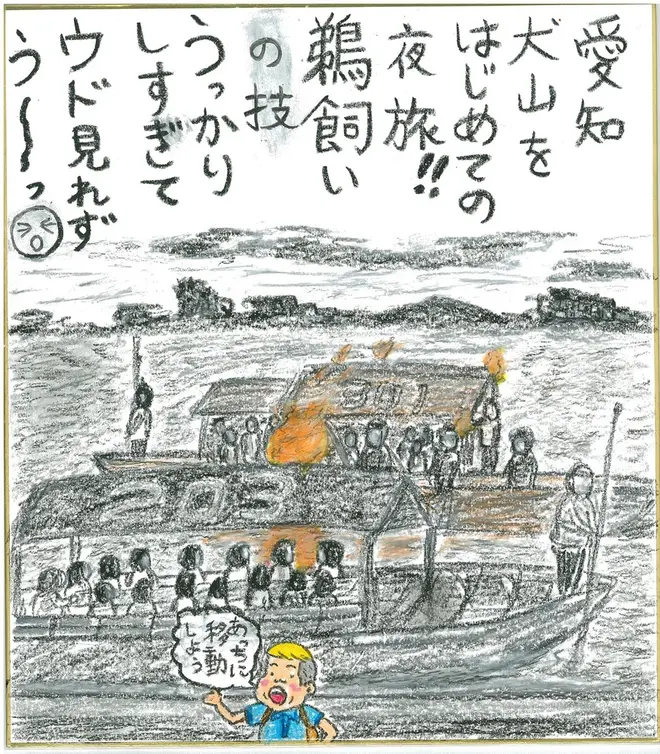 愛知
犬山を
はじめての
夜旅!!
鵜飼い
の技
うっかり
しすぎて
ウド見れず
う〜〜っ
301
203
あっちに
移動
しよう